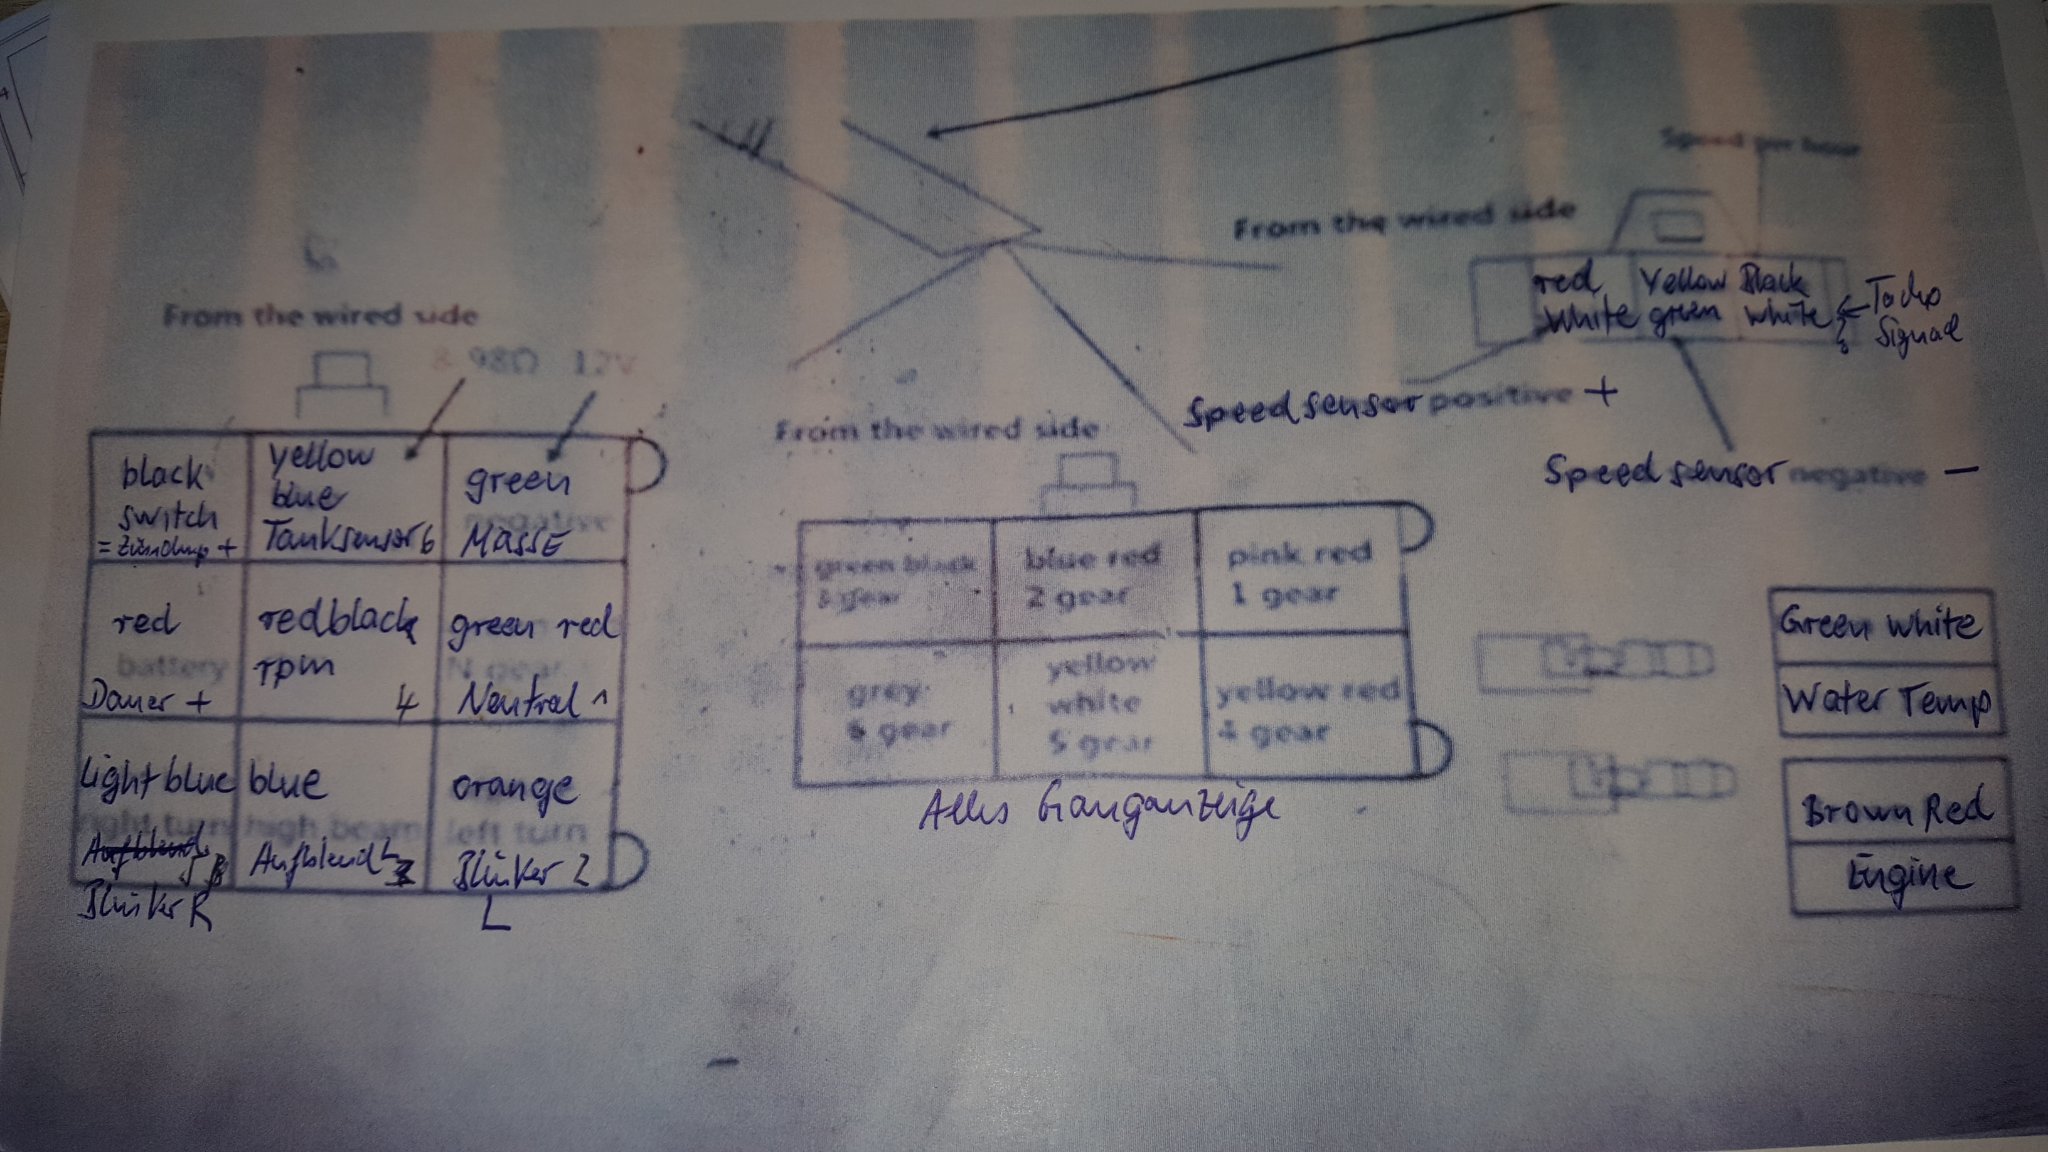 Speed per hour
From the wired side
red Yellow Black
White green White
Tacho
Signal
Speed sensor positive +
Speed sensor negative −
From the wired side
98Ω 12V
black
switch
yellow
blue
Tanksensor 6
green
negative
MASSE
red
battery
Dauer +
red black
rpm
4
green red
N gear
Neutral 1
Light blue
right turn
Blinker R
blue
high beam
Aufblend L
3
orange
left turn
Blinker 2
L
From the wired side
green black
3 gear
blue red
2 gear
pink red
1 gear
grey
6 gear
yellow
white
5 gear
yellow red
4 gear
Alles Ganganzeige
Green White
Water Temp
Brown Red
Engine